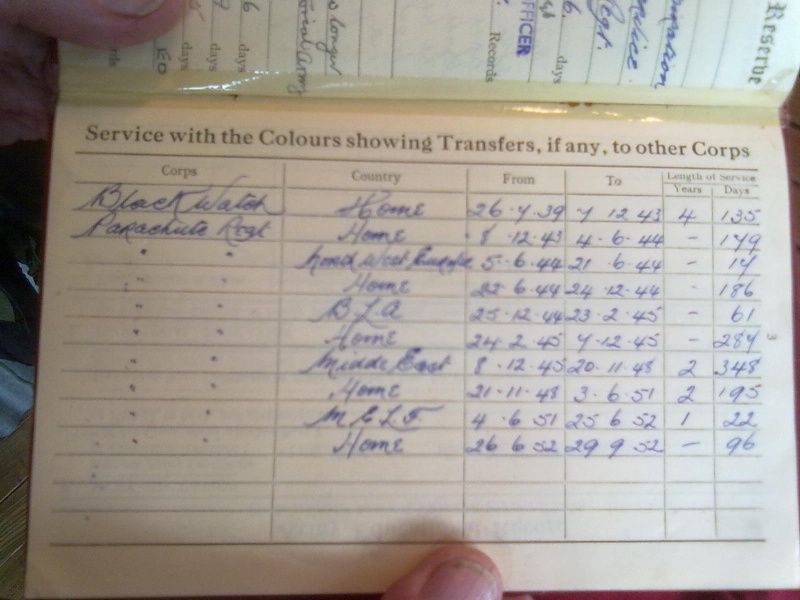 Reserve
Regt.
days
OFFICER
Records
longer
days
days
days
Service with the Colours showing Transfers, if any, to other Corps
Corps Country From To Length of Service
Years Days
Black Watch Home 26·7·39 7 12 43 4 135
Parachute Regt Home 8 ·12·43 4·6·44 - 179
" " North West Europe 5·6·44 21 ·6·44 - 17
" " Home 22·6·44 24·12·44 - 186
" " B.L.A 25·12·44 23·2·45 - 61
" " Home 24·2·45 7·12·45 - 287
" " Middle East 8·12·45 20·11·48 2 348
" " Home 21·11·48 3·6·51 2 195
" " M.E.L.F. 4·6 51 25 6 52 1 22
" " Home 26 6 52 29 9 52 - 96
3